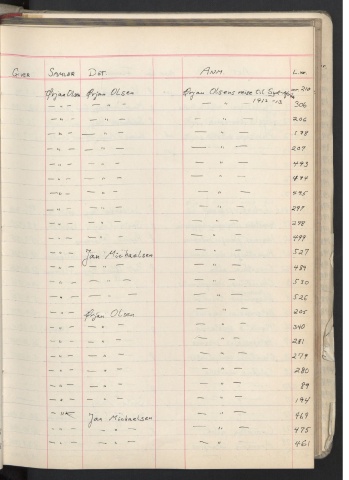 GIVER SAMLER DET ANM L.nr
Ørjan Olsen Ørjan Olsen Ørjan Olsens reise til 210
1912-13
— " — — " — — " — 306
— " — — " — — " — 206
— " — — " — — " — 198
— " — — " — — " — 207
— " — — " — — " — 493
— " — — " — — " — 494
— " — — " — — " — 495
— " — — " — — " — 297
— " — — " — — " — 298
— " — — " — — " — 499
— " — Jan Michaelsen — " — 527
— " — — " — — " — 484
— " — — " — — " — 530
— " — — " — — " — 526
— " — Ørjan Olsen — " — 205
— " — — " — — " — 340
— " — — " — — " — 281
— " — — " — — " — 279
— " — — " — — " — 280
— " — — " — — " — 89
— " — — " — — " — 194
— " — Jan Michaelsen — " — 469
— " — — " — — " — 475
— " — — " — — " 461